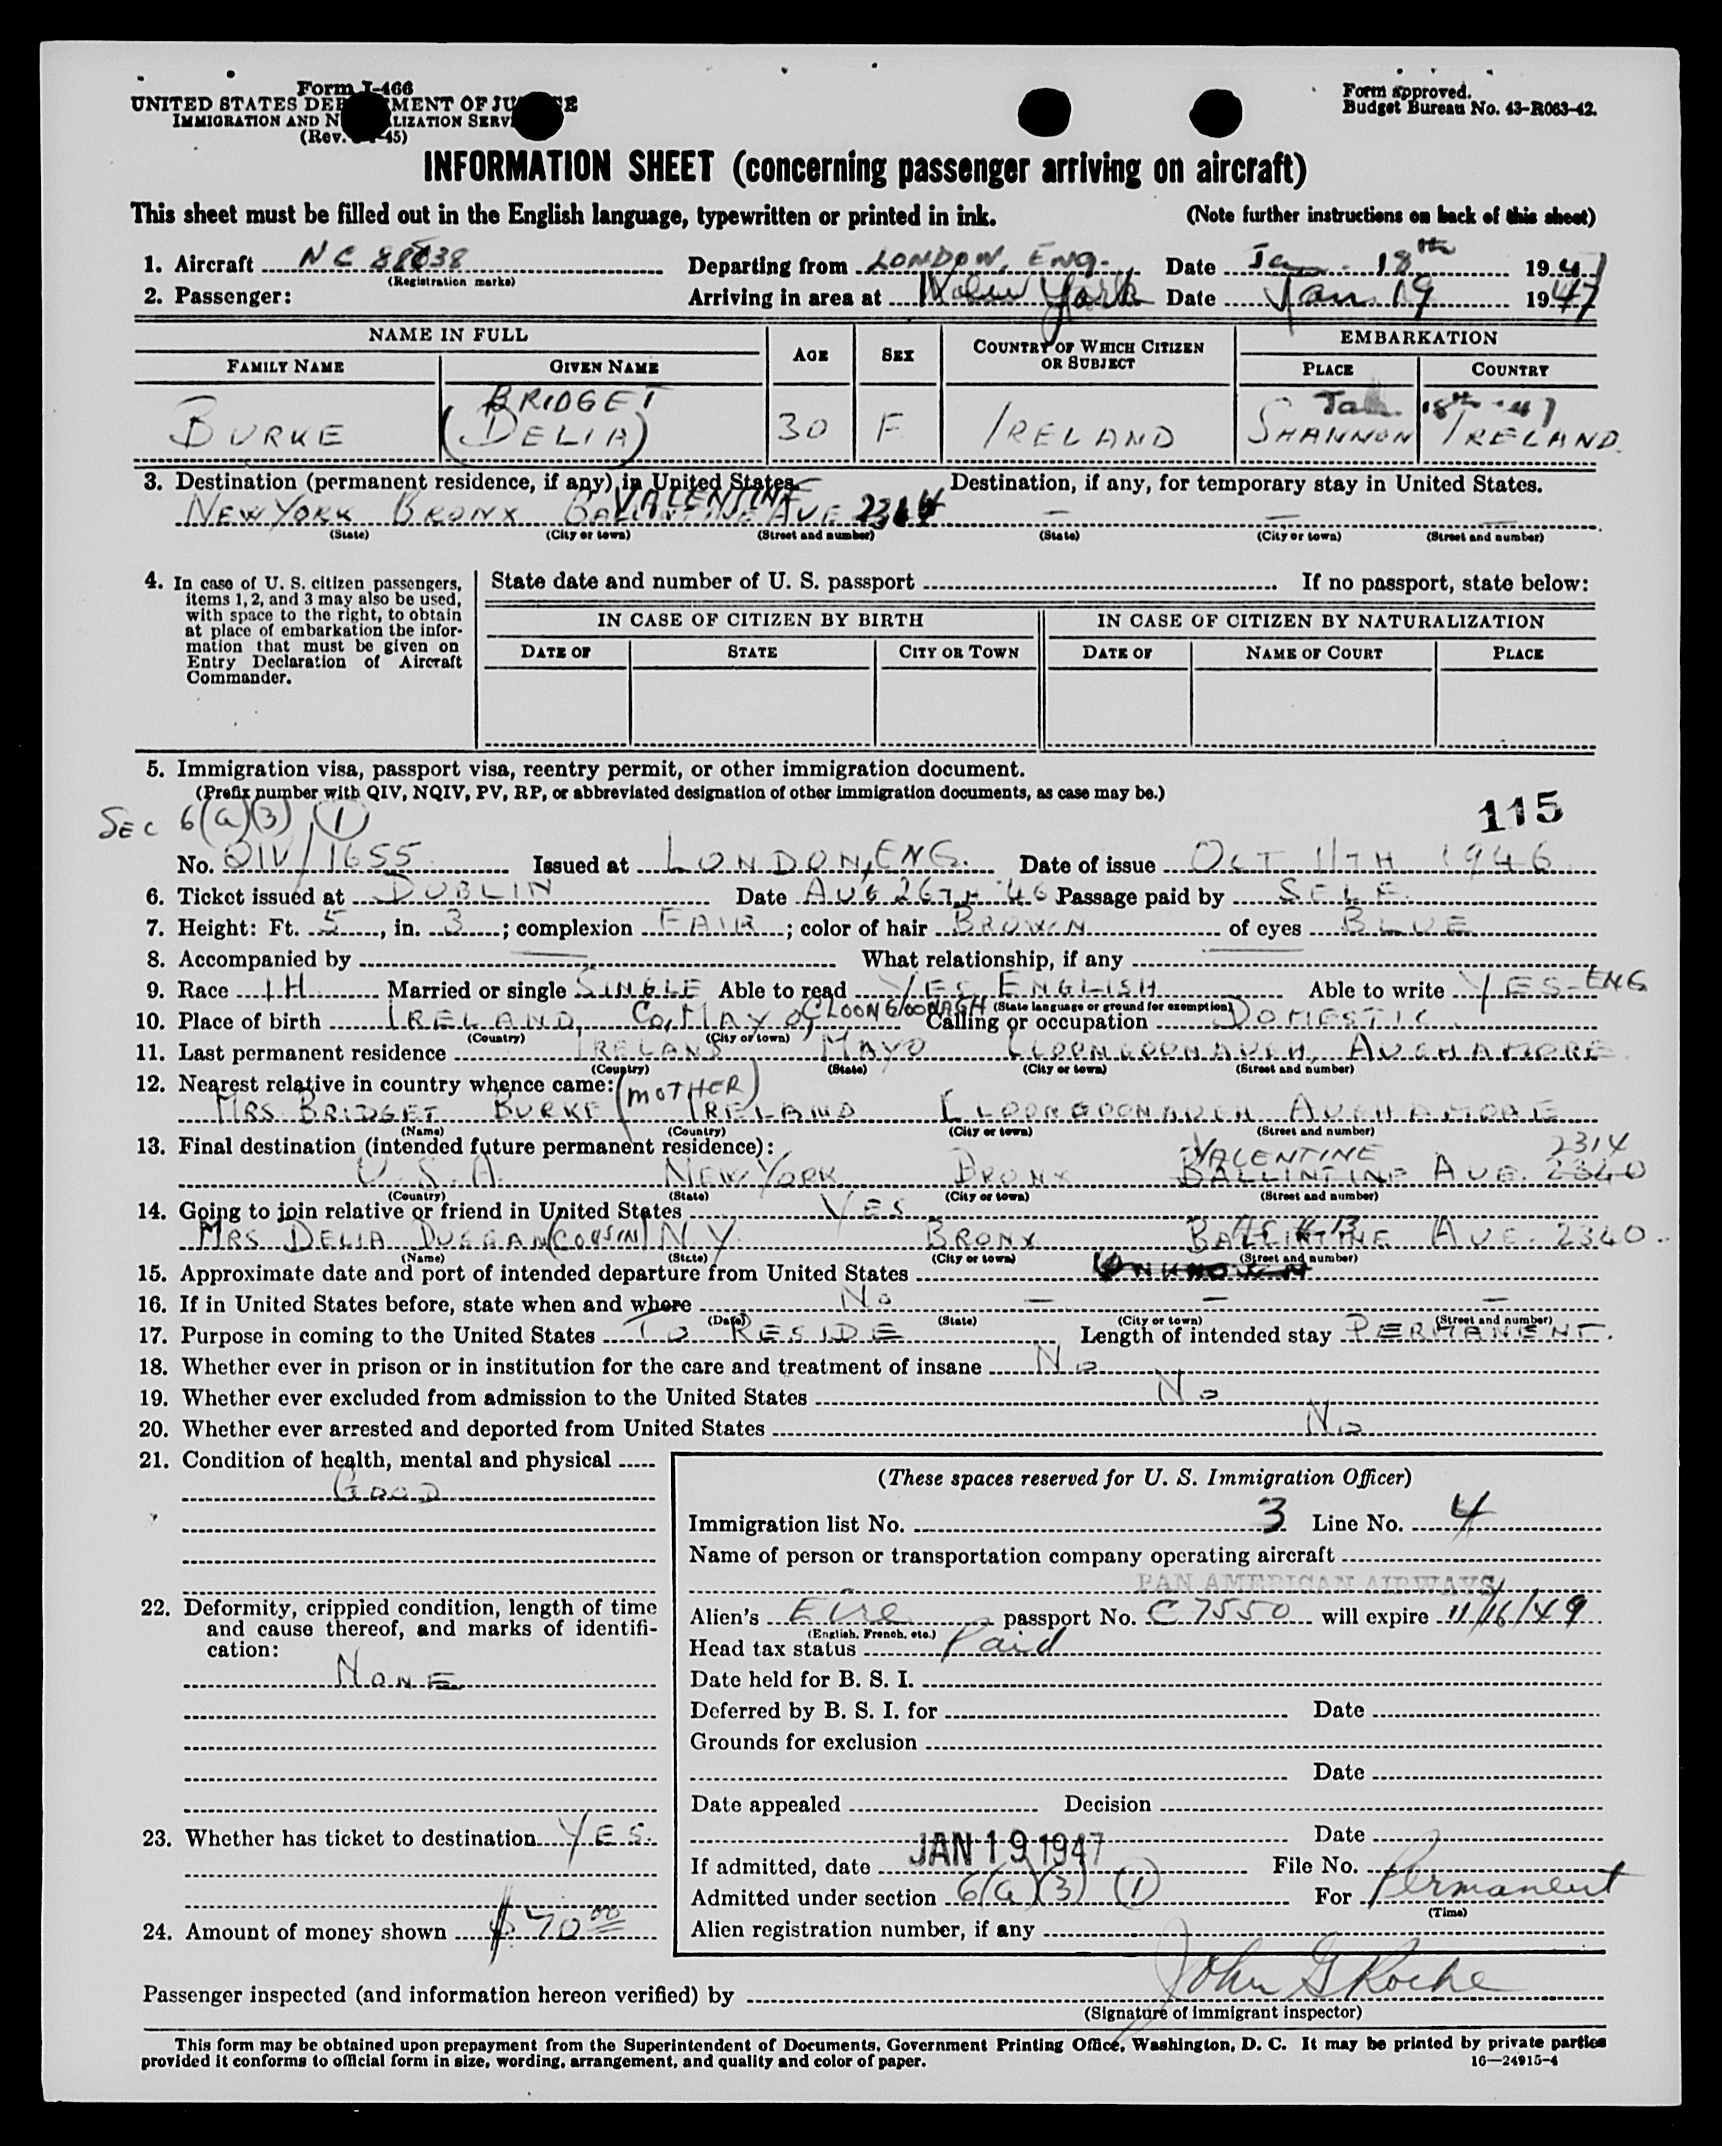 Form I-466
UNITED STATES DEPARTMENT OF JUSTICE
IMMIGRATION AND NATURALIZATION SERVICE
(Rev. 45)
Form approved.
Budget Bureau No. 43-R063-42.
INFORMATION SHEET (concerning passenger arriving on aircraft)
This sheet must be filled out in the English language, typewritten or printed in ink. (Note further instructions on back of this sheet)
1. Aircraft NC 88838 Departing from LONDON, ENG. Date Jan. 18th 1947
(Registration marks)
2. Passenger: Arriving in area at New York Date Jan. 19 1947
NAME IN FULL AGE SEX COUNTRY OF WHICH CITIZEN OR SUBJECT EMBARKATION
FAMILY NAME GIVEN NAME PLACE COUNTRY
BRIDGET Jan. 18th - 47
BURKE (DELIA) 30 F IRELAND SHANNON IRELAND.
3. Destination (permanent residence, if any) in United States. Destination, if any, for temporary stay in United States.
VALENTINE
NEW YORK BRONX BALLINTINE AVE 2314 — — —
(State) (City or town) (Street and number) (State) (City or town) (Street and number)
4. In case of U. S. citizen passengers, items 1, 2, and 3 may also be used, with space to the right, to obtain at place of embarkation the information that must be given on Entry Declaration of Aircraft Commander.
State date and number of U. S. passport If no passport, state below:
IN CASE OF CITIZEN BY BIRTH IN CASE OF CITIZEN BY NATURALIZATION
DATE OF STATE CITY OR TOWN DATE OF NAME OF COURT PLACE
5. Immigration visa, passport visa, reentry permit, or other immigration document.
(Prefix number with QIV, NQIV, PV, RP, or abbreviated designation of other immigration documents, as case may be.)
SEC 6(a)(3) (1) 115
No. QIV/1655 Issued at LONDON, ENG. Date of issue OCT 11TH 1946
6. Ticket issued at DUBLIN Date AUG 26TH '46 Passage paid by SELF.
7. Height: Ft. 5, in. 3; complexion FAIR; color of hair BROWN of eyes BLUE
8. Accompanied by — What relationship, if any —
9. Race IH Married or single SINGLE Able to read YES ENGLISH Able to write YES-ENG
(State language or ground for exemption)
10. Place of birth IRELAND, Co, MAYO, CLOONGOONAGH Calling or occupation DOMESTIC
(Country) (City or town)
11. Last permanent residence IRELAND MAYO CLOONGOONAUGH, AUGHAMORE.
(Country) (State) (City or town) (Street and number)
12. Nearest relative in country whence came: (MOTHER)
MRS. BRIDGET BURKE IRELAND CLOONGOONAUGH AUGHAMORE
(Name) (Country) (City or town) (Street and number)
13. Final destination (intended future permanent residence):
VALENTINE 2314
U.S.A. NEW YORK BRONX BALLINTINE AVE. 2340
(Country) (State) (City or town) (Street and number)
14. Going to join relative or friend in United States YES
MRS DELIA DUGGAN (COUSIN) N.Y. BRONX BALLINTINE AVE. 2340.
(Name) (State) (City or town) (Street and number)
15. Approximate date and port of intended departure from United States UNKNOWN
16. If in United States before, state when and where No — — —
(Date) (State) (City or town) (Street and number)
17. Purpose in coming to the United States TO RESIDE Length of intended stay PERMANENT.
18. Whether ever in prison or in institution for the care and treatment of insane No
19. Whether ever excluded from admission to the United States No
20. Whether ever arrested and deported from United States No
21. Condition of health, mental and physical
GOOD
22. Deformity, crippled condition, length of time and cause thereof, and marks of identification:
NONE
23. Whether has ticket to destination YES.
24. Amount of money shown $70.00
(These spaces reserved for U. S. Immigration Officer)
Immigration list No. 3 Line No. 4
Name of person or transportation company operating aircraft
PAN AMERICAN AIRWAYS
Alien's Eire passport No. C7550 will expire 11/16/49
(English, French, etc.)
Head tax status Paid
Date held for B. S. I.
Deferred by B. S. I. for Date
Grounds for exclusion
Date
Date appealed Decision
Date
If admitted, date JAN 19 1947 File No.
Admitted under section 6(a)(3) (1) For Permanent
(Time)
Alien registration number, if any
Passenger inspected (and information hereon verified) by John G Roche
(Signature of immigrant inspector)
This form may be obtained upon prepayment from the Superintendent of Documents, Government Printing Office, Washington, D. C. It may be printed by private parties
provided it conforms to official form in size, wording, arrangement, and quality and color of paper. 16—24915-4